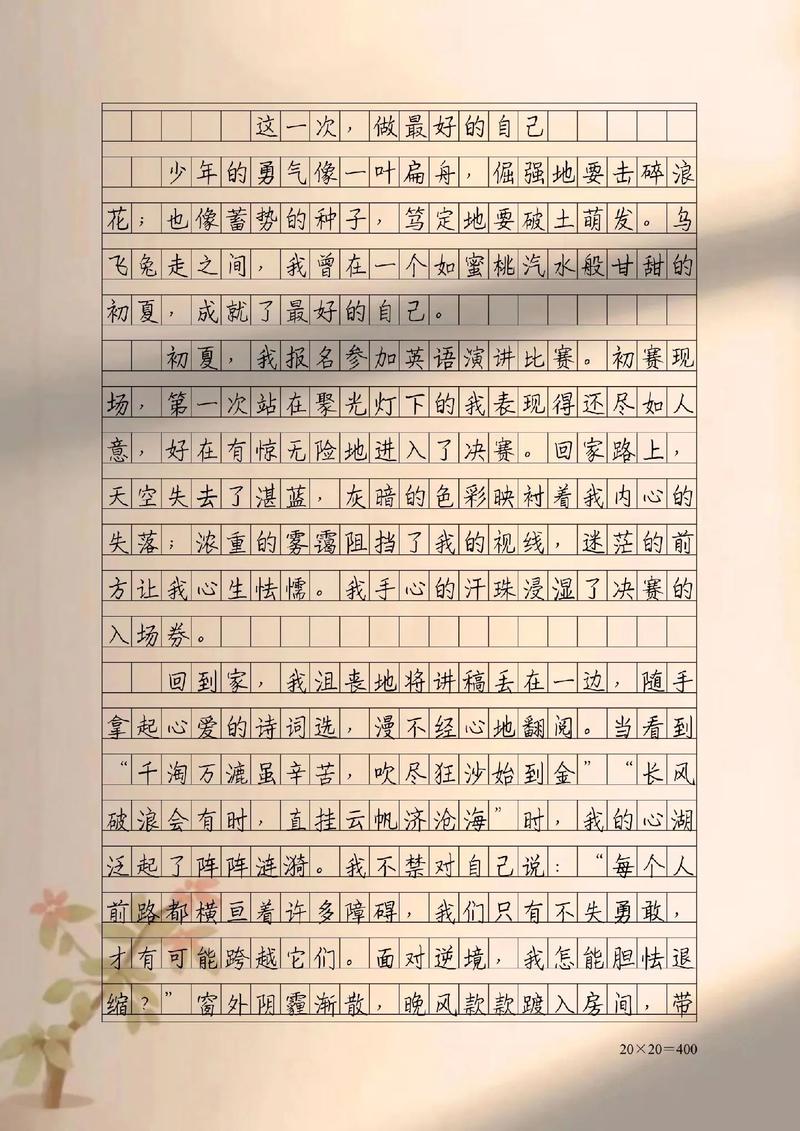 这一次，做最好的自己
少年的勇气像一叶扁舟，倔强地要击碎浪
花；也像蓄势的种子，笃定地要破土萌发。乌
飞兔走之间，我曾在一个如蜜桃汽水般甘甜的
初夏，成就了最好的自己。
初夏，我报名参加英语演讲比赛。初赛现
场，第一次站在聚光灯下的我表现得还尽如人
意，好在有惊无险地进入了决赛。回家路上，
天空失去了湛蓝，灰暗的色彩映衬着我内心的
失落；浓重的雾霭阻挡了我的视线，迷茫的前
方让我心生怯懦。我手心的汗珠浸湿了决赛的
入场券。
回到家，我沮丧地将讲稿丢在一边，随手
拿起心爱的诗词选，漫不经心地翻阅。当看到
“千淘万漉虽辛苦，吹尽狂沙始到金”“长风
破浪会有时，直挂云帆济沧海”时，我的心湖
泛起了阵阵涟漪。我不禁对自己说：“每个人
前路都横亘着许多障碍，我们只有不失勇敢，
才有可能跨越它们。面对逆境，我怎能胆怯退
缩？”窗外阴霾渐散，晚风款款踱入房间，带
20×20=400